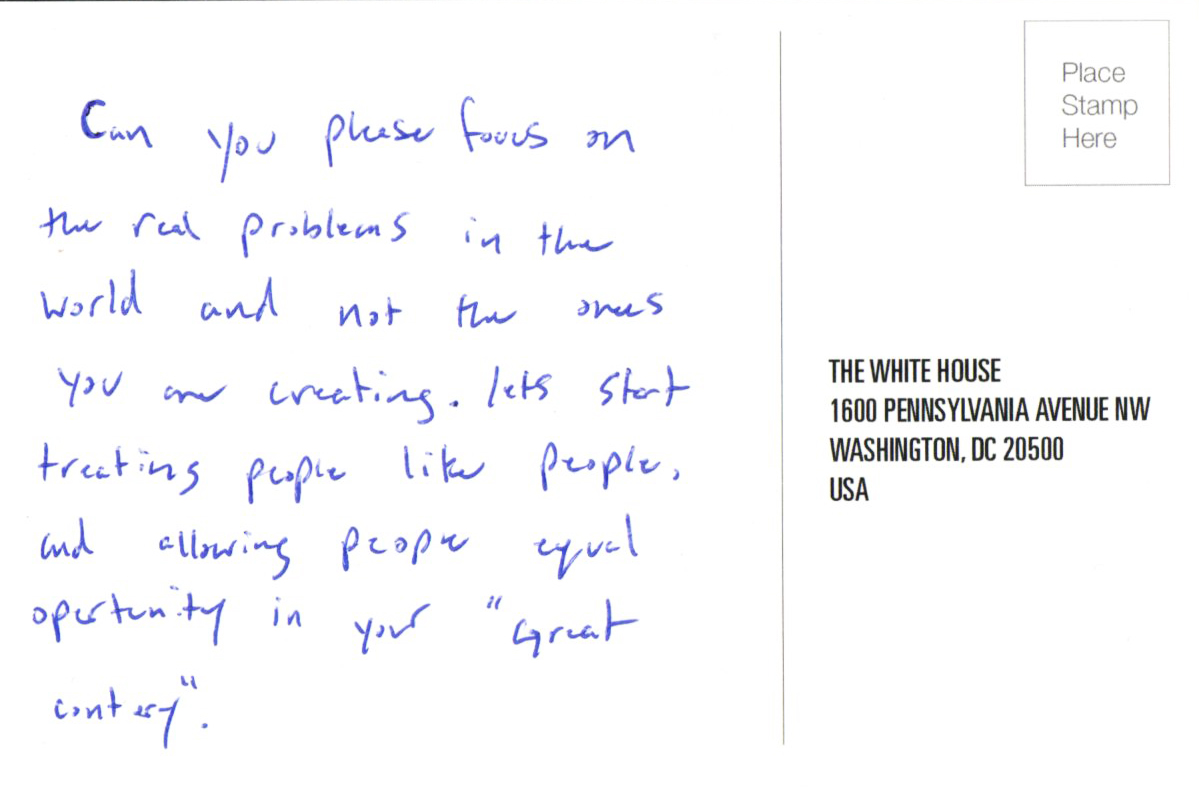 Can you please focus on
the real problems in the
world and not the ones
you are creating. lets start
treating people like people,
and allowing people equal
opertunity in your "Great
contery".
Place
Stamp
Here
THE WHITE HOUSE
1600 PENNSYLVANIA AVENUE NW
WASHINGTON, DC 20500
USA